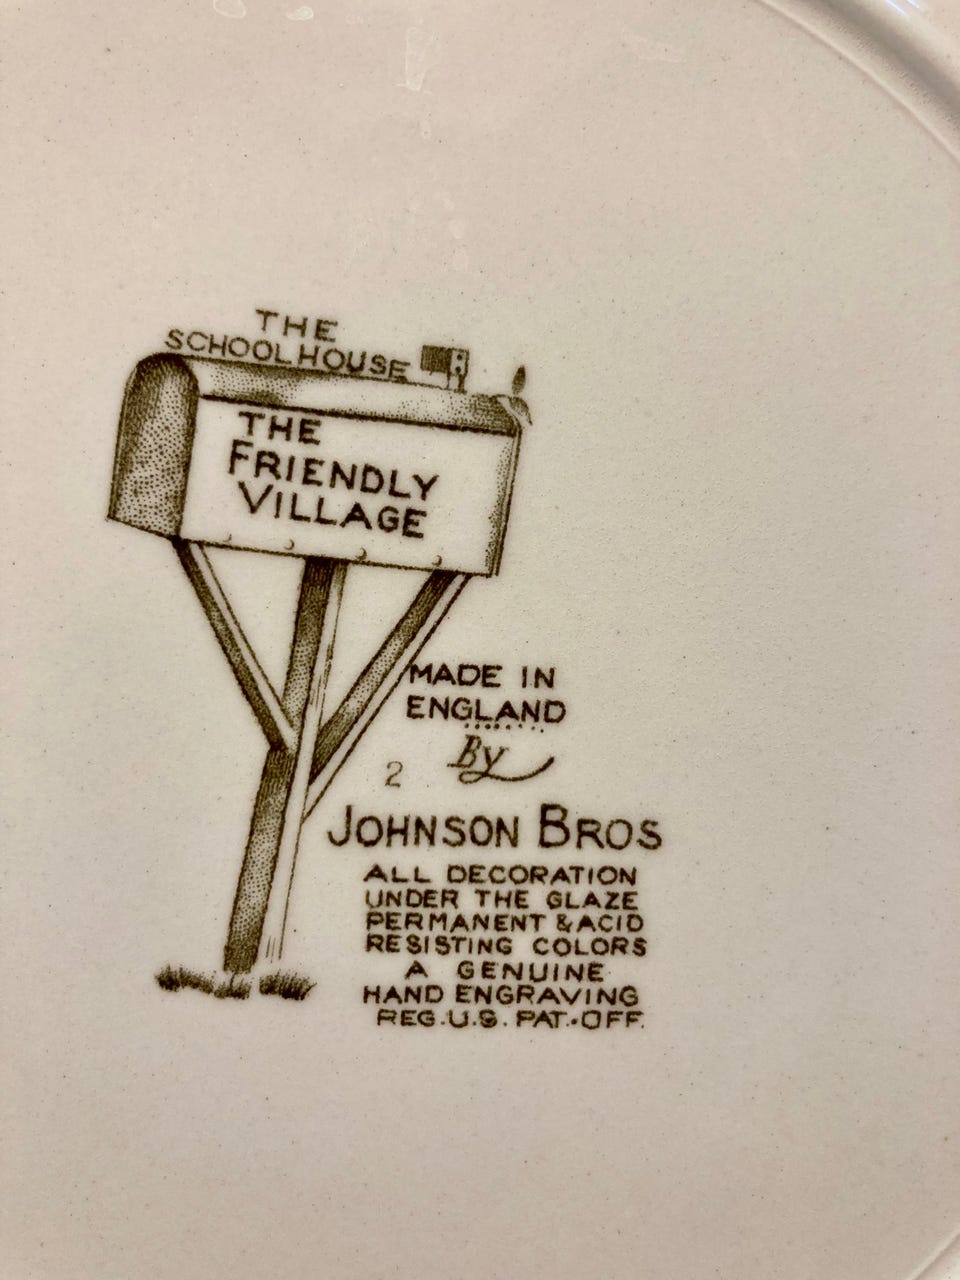 THE
SCHOOL HOUSE
THE
FRIENDLY
VILLAGE
MADE IN
ENGLAND
By
2
JOHNSON BROS
ALL DECORATION
UNDER THE GLAZE
PERMANENT & ACID
RESISTING COLORS
A GENUINE
HAND ENGRAVING
REG. U.S. PAT. OFF.